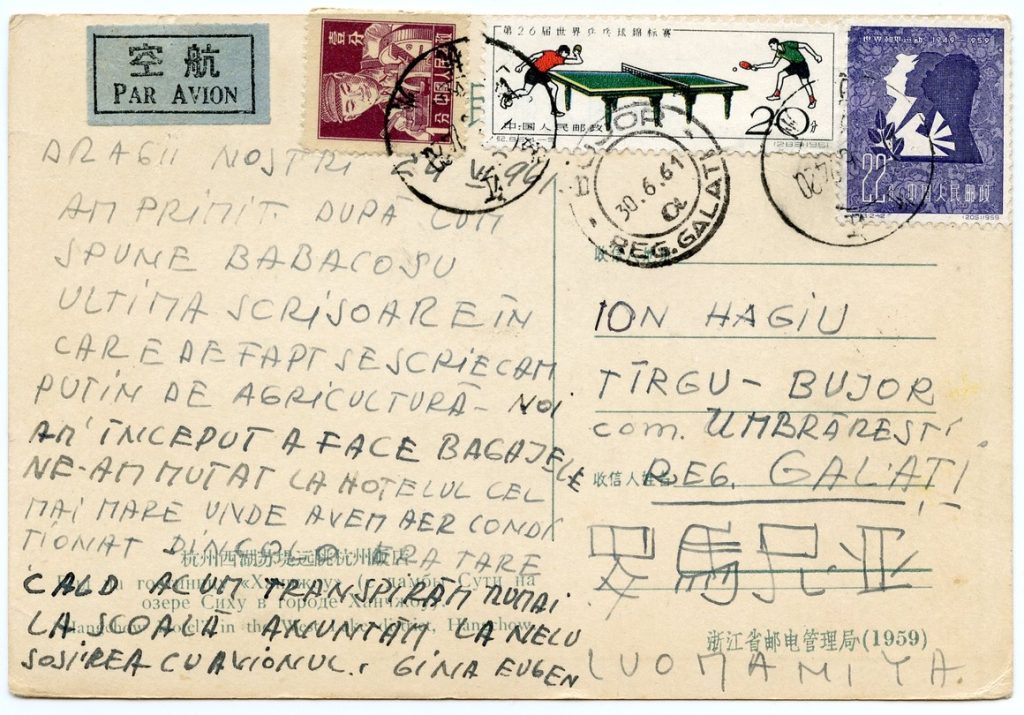 空航
PAR AVION
壹分
第26届世界乒乓球锦标赛
中国人民邮政
20分
世界和平运动 1949-1959
22分
中国人民邮政
BUJOR
30.6.61
REG. GALATI
DRAGII NOSTRI
AM PRIMIT. DUPĂ CUM
SPUNE BABACOSU
ULTIMA SCRISOARE ÎN
CARE DE FAPT SE SCRIE CAM
PUTIN DE AGRICULTURĂ - NOI
AM ÎNCEPUT A FACE BAGAJELE
NE-AM MUTAT LA HOTELUL CEL
MAI MARE UNDE AVEM AER CONDI
TIONAT DINCOLO ERA TARE
CALD ACUM TRANSPIRAM NUMAI
LA ȘCOALĂ ANUNTAM LA NELU
SOSIREA CU AVIONUL. GINA EUGEN
杭州西湖苏堤远眺杭州飯店
гостиницы «Ханчжоу» (с дамбы Сути на
озере Сиху в городе Ханчжоу).
Hangchow Hotel in the West Lake district, Hangchow
ION HAGIU
TÎRGU - BUJOR
com. UMBRĂREȘTI
收信人姓名
REG. GALAȚI
罗馬尼亚
浙江省邮电管理局(1959)
LUOMANIYA.